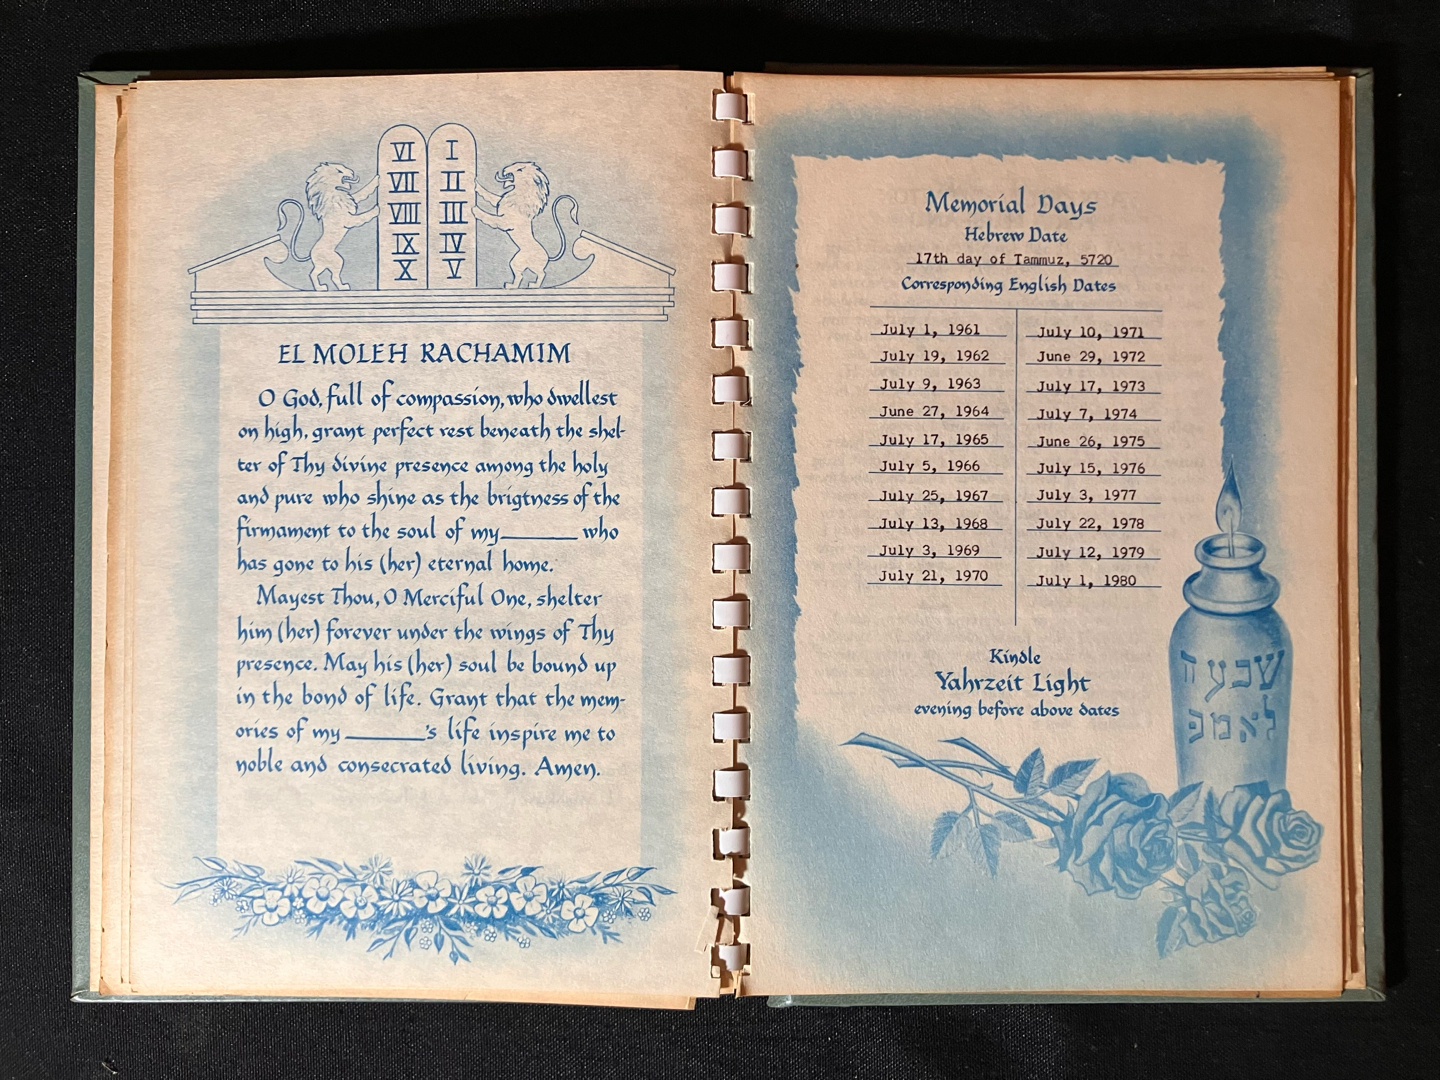 VI I
VII II
VIII III
IX IV
X V
EL MOLEH RACHAMIM
O God, full of compassion, who dwellest
on high, grant perfect rest beneath the shel-
ter of Thy divine presence among the holy
and pure who shine as the brigtness of the
firmament to the soul of my ________ who
has gone to his (her) eternal home.
Mayest Thou, O Merciful One, shelter
him (her) forever under the wings of Thy
presence. May his (her) soul be bound up
in the bond of life. Grant that the mem-
ories of my ________'s life inspire me to
noble and consecrated living. Amen.
Memorial Days
Hebrew Date
17th day of Tammuz, 5720
Corresponding English Dates
July 1, 1961
July 19, 1962
July 9, 1963
June 27, 1964
July 17, 1965
July 5, 1966
July 25, 1967
July 13, 1968
July 3, 1969
July 21, 1970
July 10, 1971
June 29, 1972
July 17, 1973
July 7, 1974
June 26, 1975
July 15, 1976
July 3, 1977
July 22, 1978
July 12, 1979
July 1, 1980
Kindle
Yahrzeit Light
evening before above dates
לאמפ